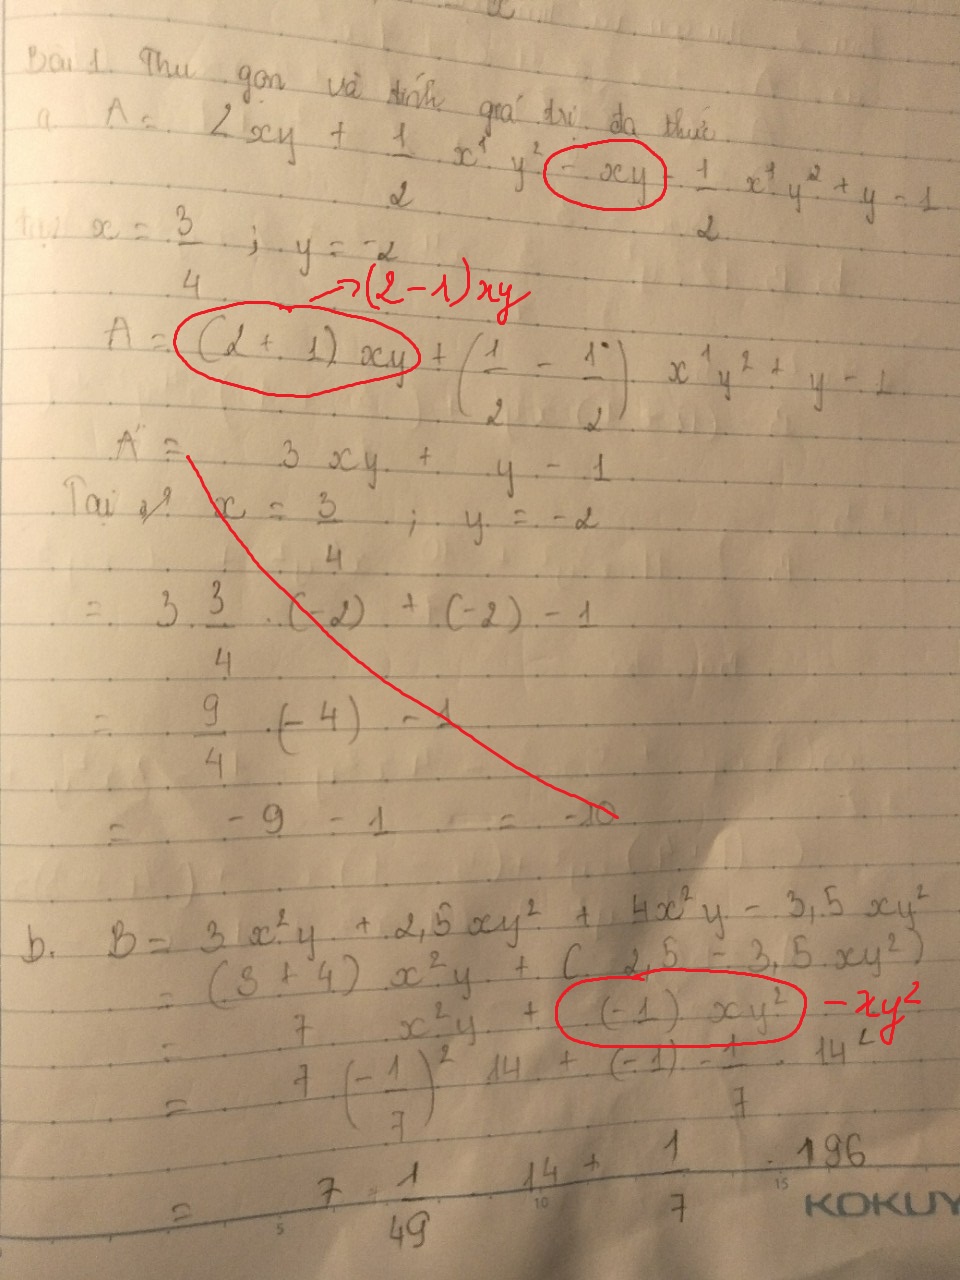 Bài 1. Thu gọn và tính giá trị đa thức.
a. A = 2xy + 1/2 x¹y² - xy - 1/2 x¹y² + y - 1
tại x = 3/4 ; y = -2
→(2-1)xy
A = (2 + 1) xy + (1/2 - 1/2) x¹y² + y - 1
A = 3xy + y - 1
Tại x = 3/4 ; y = -2
= 3 . 3/4 . (-2) + (-2) - 1
= 9/4 . (-4) - 1
= -9 - 1 = -10
b. B = 3x²y + 2,5xy² + 4x²y - 3,5xy²
= (3 + 4) x²y + (2,5 - 3,5 xy²)
= 7 x²y + (-1) xy² - xy²
= 7 (-1/7)² 14 + (-1) - 1/7 . 14²
= 7 . 1/49 . 14 + 1/7 . 196
5 10 15
KOKUY